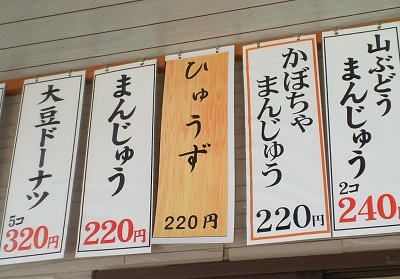 大豆ドーナツ
5コ
320円
まんじゅう
220円
ひゅうず
220円
かぼちゃ
まんじゅう
220円
山ぶどう
まんじゅう
2コ
240円